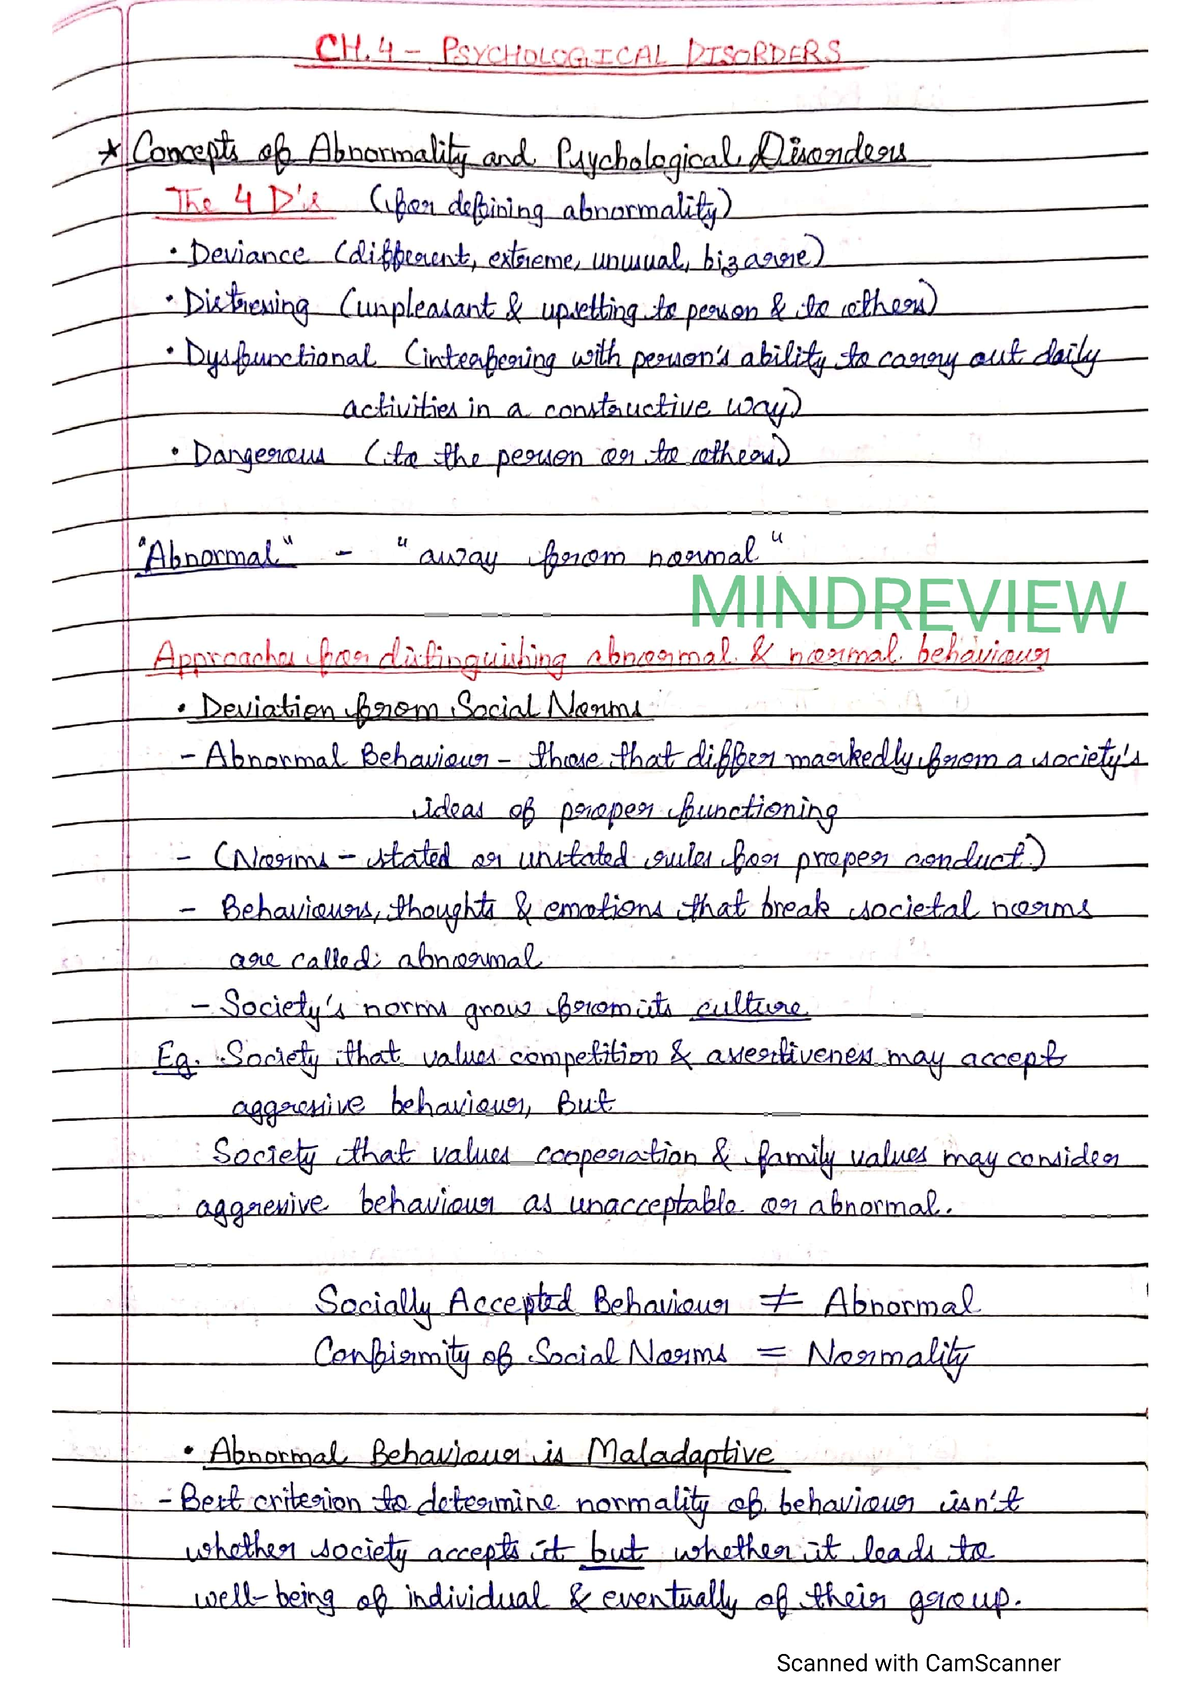 CH.4 – PSYCHOLOGICAL DISORDERS
★ Concepts of Abnormality and Psychological Disorders
The 4 D's (for defining abnormality)
• Deviance (different, extreme, unusual, bizarre)
• Distressing (unpleasant & upsetting to person & to others)
• Dysfunctional (interfering with person's ability to carry out daily
activities in a constructive way)
• Dangerous (to the person or to others)
"Abnormal" – "away from normal"
MINDREVIEW
Approaches for distinguishing abnormal & normal behaviour
• Deviation from Social Norms
– Abnormal Behaviour – those that differ markedly from a society's
ideas of proper functioning
– (Norms – stated or unstated rules for proper conduct)
– Behaviours, thoughts & emotions that break societal norms
are called: abnormal
– Society's norms grow from its culture
Eg. Society that values competition & assertiveness may accept
aggressive behaviour, But
Society that values cooperation & family values may consider
aggressive behaviour as unacceptable or abnormal.
Socially Accepted Behaviour ≠ Abnormal
Confirmity of Social Norms = Normality
• Abnormal Behaviour is Maladaptive
– Best criterion to determine normality of behaviour isn't
whether society accepts it but whether it leads to
well-being of individual & eventually of their group.
Scanned with CamScanner